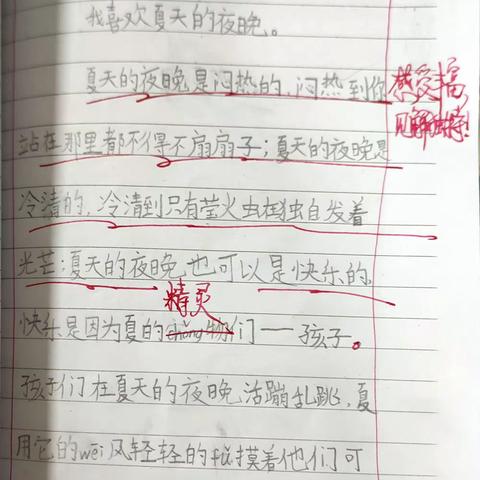 我喜欢夏天的夜晚。
夏天的夜晚是闷热的，闷热到你
站在那里都不得不扇扇子；夏天的夜晚是
冷清的，冷清到只有萤火虫在独自发着
光芒；夏天的夜晚也可以是快乐的，
精灵
快乐是因为夏的chǒng物们——孩子。
孩子们在夏天的夜晚活蹦乱跳，夏
用它的wēi风轻轻的fǔ摸着他们可
感受丰富
见解独特！